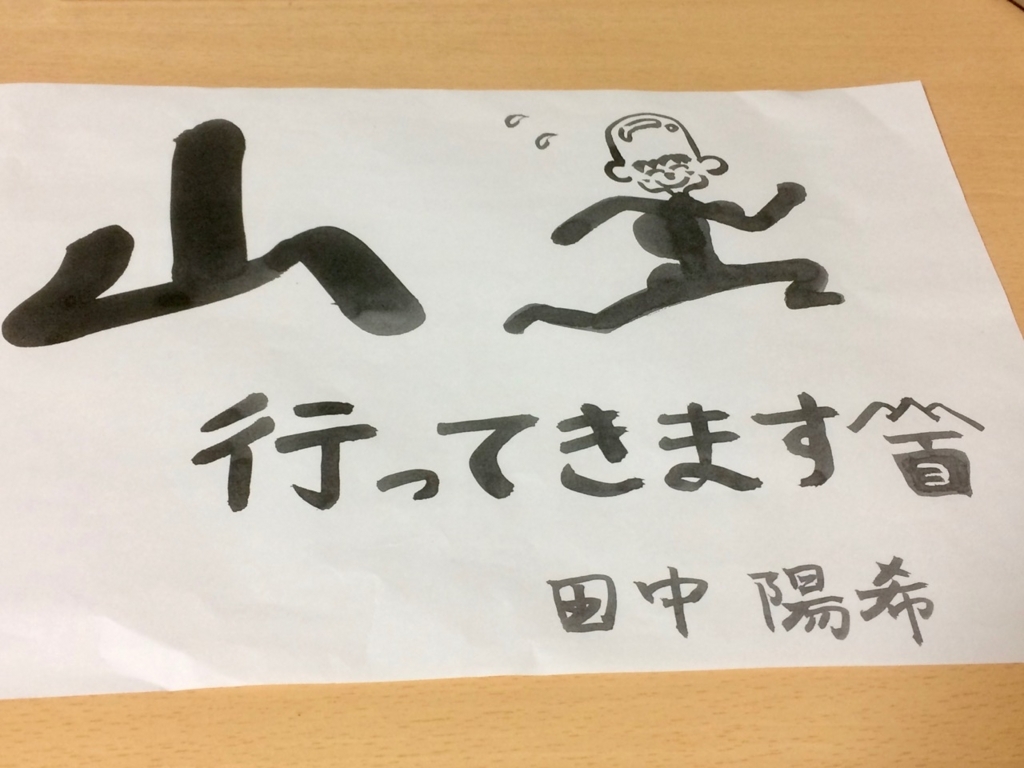 山
行ってきます
田中 陽希